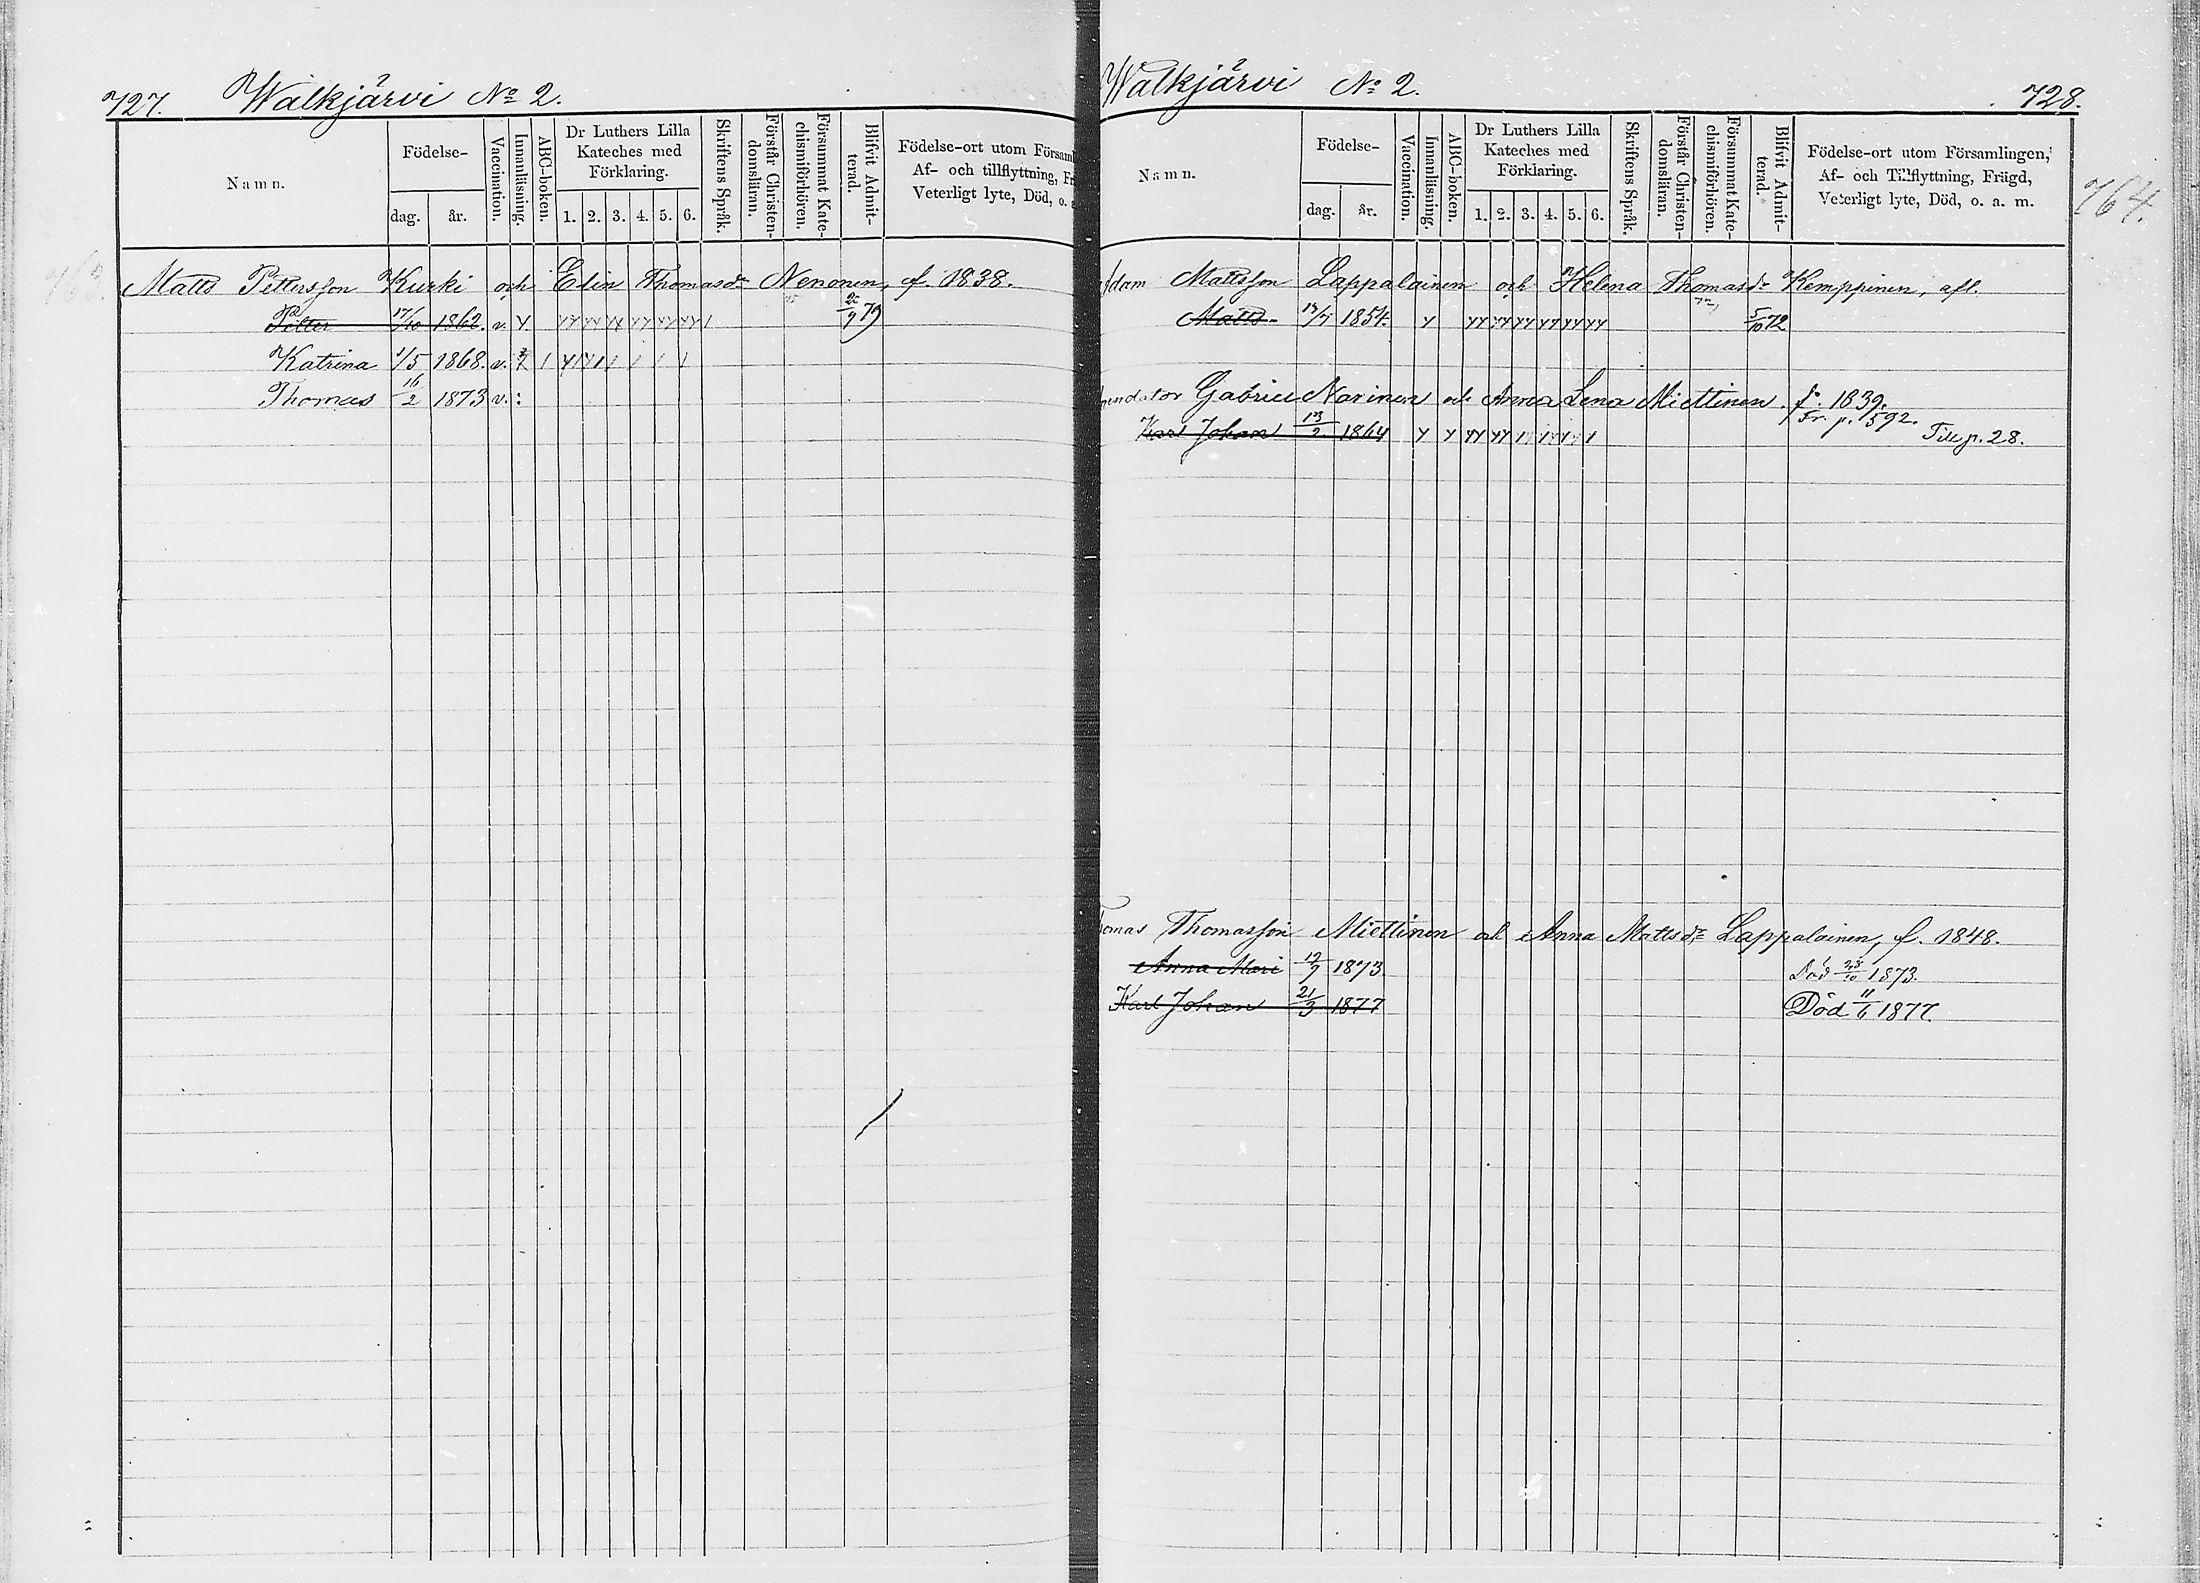 727. Walkjärvi No 2.
Namn.
Födelse-
dag.
år.
Vaccination.
Innanläsning.
ABC-boken.
Dr Luthers Lilla
Kateches med
Förklaring.
1. 2. 3. 4. 5. 6.
Skriftens Språk.
Förstår Christen-
domsläran.
Försummat Kate-
chismiförhören.
Blifvit Admit-
terad.
Födelse-ort utom Församl
Af- och tillflyttning, Fr
Veterligt lyte, Död, o. a
763.
Matts Pettersson Kurki och Elin Thomasdr Nenonen, f. 1838.
Petter 17/10 1862. v. 79
Katrina 1/5 1868. v.
Thomas 16/2 1873 v.
Walkjärvi No 2. 728.
Namn.
Födelse-
dag.
år.
Vaccination.
Innanläsning.
ABC-boken.
Dr Luthers Lilla
Kateches med
Förklaring.
1. 2. 3. 4. 5. 6.
Skriftens Språk.
Förstår Christen-
domsläran.
Försummat Kate-
chismiförhören.
Blifvit Admit-
terad.
Födelse-ort utom Församlingen,
Af- och Tillflyttning, Frägd,
Veterligt lyte, Död, o. a. m.
764.
Adam Mattsson Lappalainen och Helena Thomasdr Kemppinen, afl.
Matts 1854. 5/10 72
Gabriel Narinen och Anna Lena Miettinen. f. 1839.
Fr. p. 592.
Karl Johan 13/2 1864 Till p. 28.
Thomasson Miettinen och Anna Mattsdr Lappalainen, f. 1848.
Anna Mari 12/7 1873. Död 28/10 1873.
Karl Johan 21/3 1877 Död 11/6 1877.